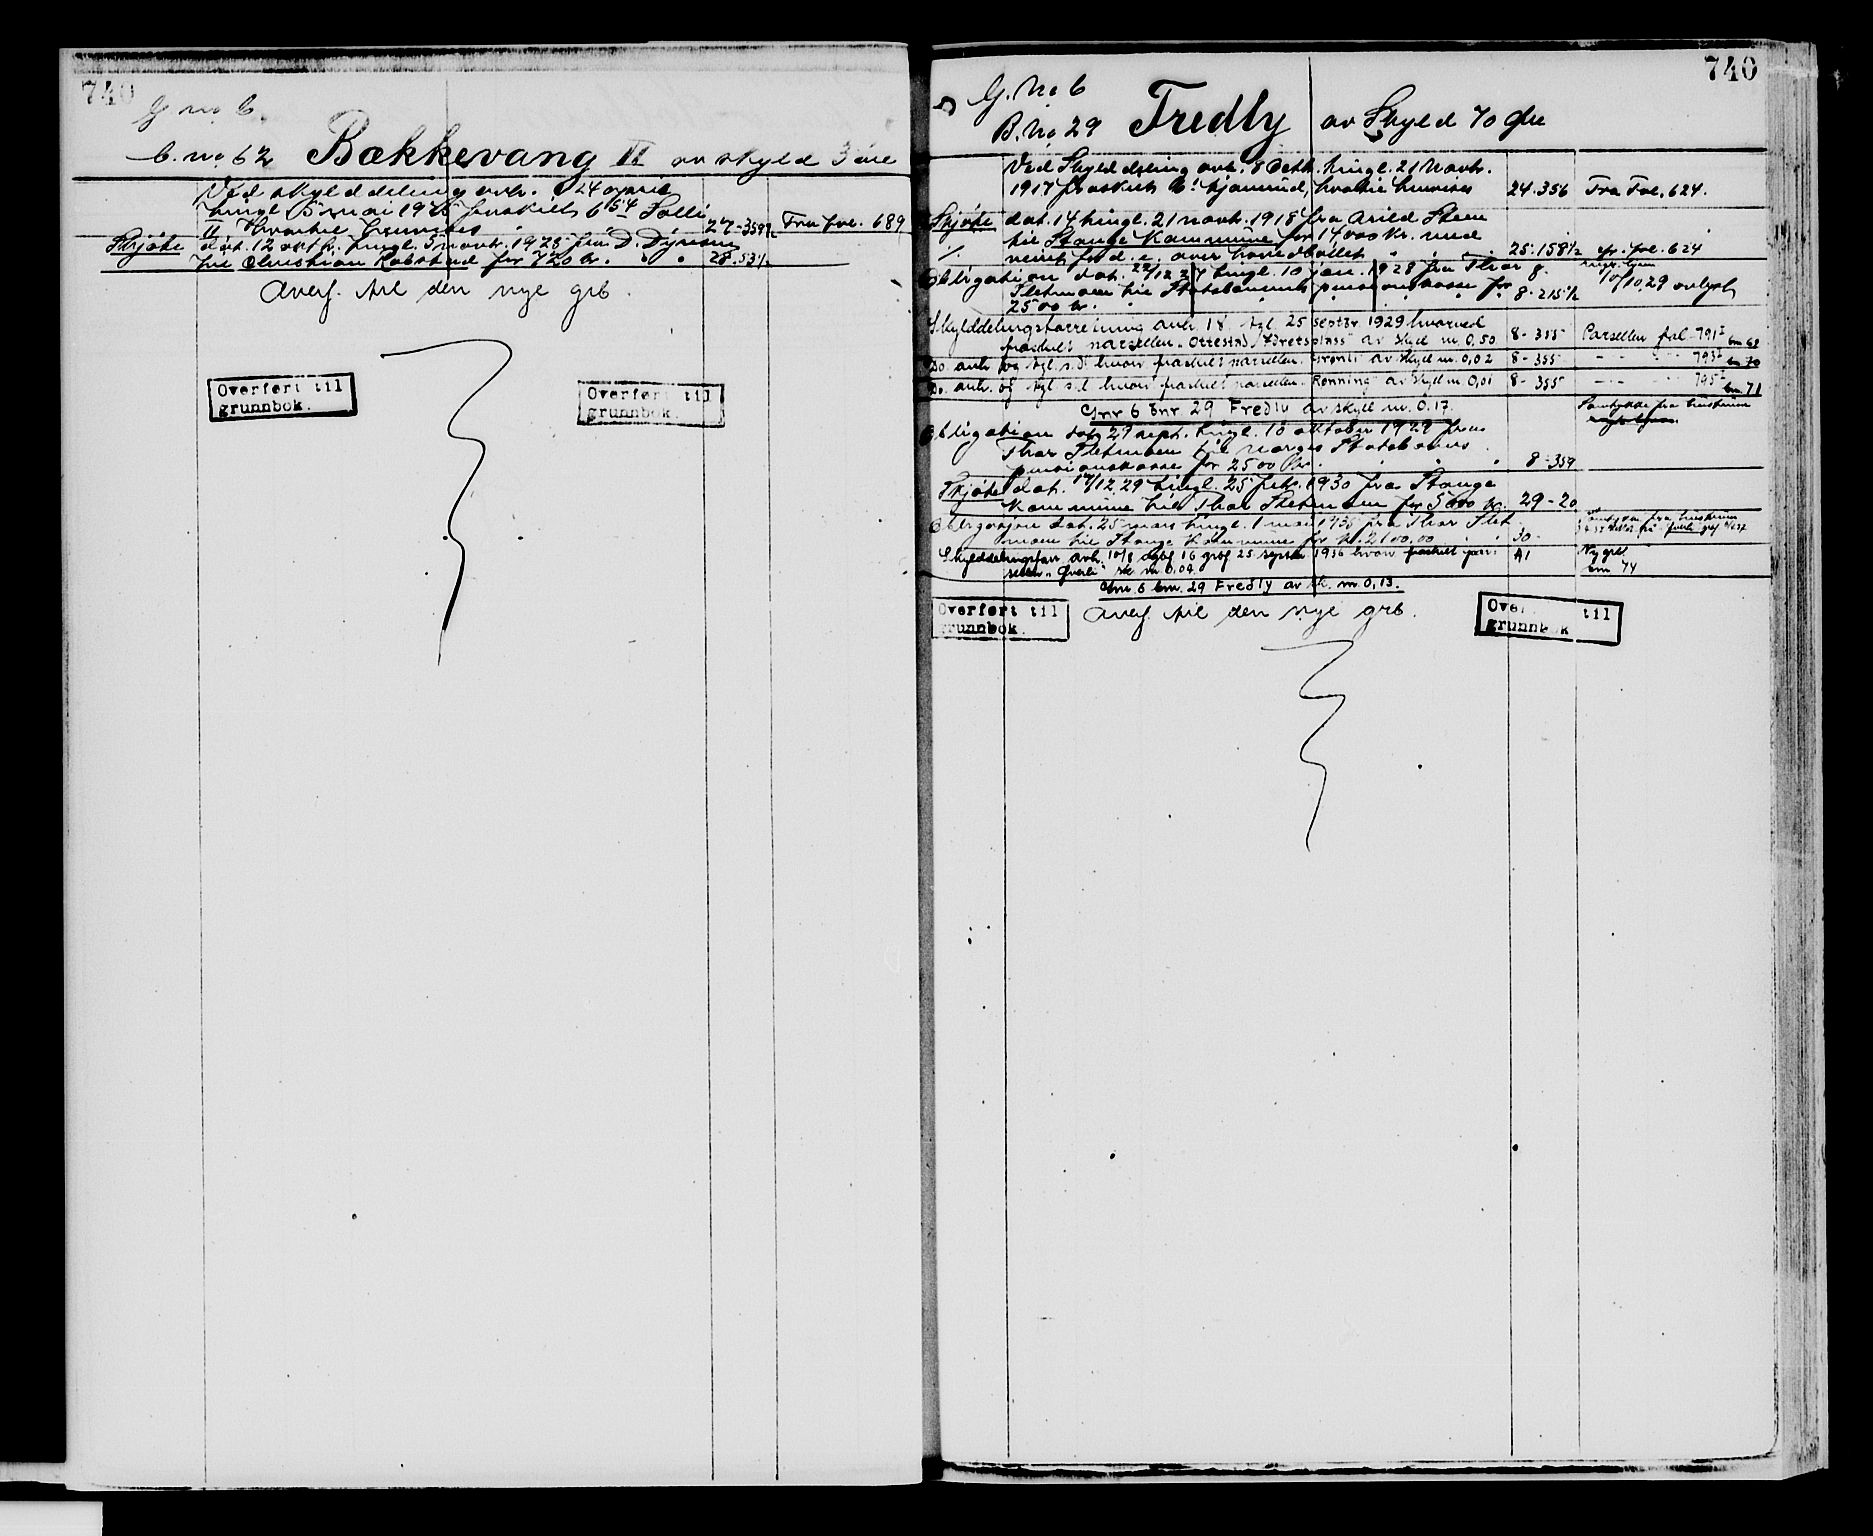 740
G. no 6.
b. no 62 Bækkevang II av skyld 3 øre
Ved skylddeling avh. 24 april
tingl. 5 mai 1925 fraskilt 6 54 Solli
hvortil henvises 27-359½ Fra fol. 689
Skjøte dat. 12 tingl. 5 novbr. 1928 fra D. Dyresen
til Christian Kobstad for 720 kr. 28.531½
Overf. til den nye grb.
Overført til
grunnbok.
Overført til
grunnbok.
740
G. No 6
B. No 29 Fredly av Skyld 70 øre
Ved Skylddeling avh. 8 tingl. 21 Novbr.
1917 fraskilt hvortil henvises 24.356 Fra Fol. 624.
Skjøte dat. 14 tingl. 21 novbr. 1918 fra Arild Steen
til Stange Kommune for 14000 kr. med
over hovedbøllet 25.158½ fol. 624
Obligation dat. 22/12 27 tingl. 10 jan. 1928 fra Thor 8.
Sletmoen til Statsbanernes pensionskasse for 8-215½ 10/10.29 avlyst
2500 kr.
Skylddelingsforretning avh. 18 tgl. 25 septbr. 1929 hvorved
fraskilt parsellen "Ottestad Idretsplass" av skyld m. 0,50 8-355 Parsellen fol 791
Do. avh. og tgl. s.d. hvor fraskilt parsellen Grønli av skyld m. 0,02 8-355 793 bn 70
Do. avh. og tgl s.d. hvor fraskilt parsellen Rønning av skyld m 0,01 8-355 795 bn. 71
Gnr 6 bnr 29 Fredly av skyld m. 0,17.
Samtykke fra hustruen
Obligation dat 29 sept. tingl. 10 oktober 1929 fra
Thor Sletmoen til Norges Statsbaners
pensionskasse for 2500 kr. 8-359
Skjøte dat. 17/12.29 tingl. 25 febr. 1930 fra Stange
kommune til Thor Sletmoen for 5000 kr. 29-20
Obligasjon dat. 25 mars tingl. 1 mai 1935 fra Thor Slet
moen til Stange Kommune for kr. 2100,00 30
Skylddelingsforr. avh. 10/8 16 25 septbr 1936 hvor fraskilt par
sellen "Øverli" sk. m 0.04. A1 Ny grb bn 74
Gnr. 6 bnr. 29 Fredly av sk. m 0,13.
Overf. til den nye grb.
Overført til
grunnbok.
Over til
grunnbok